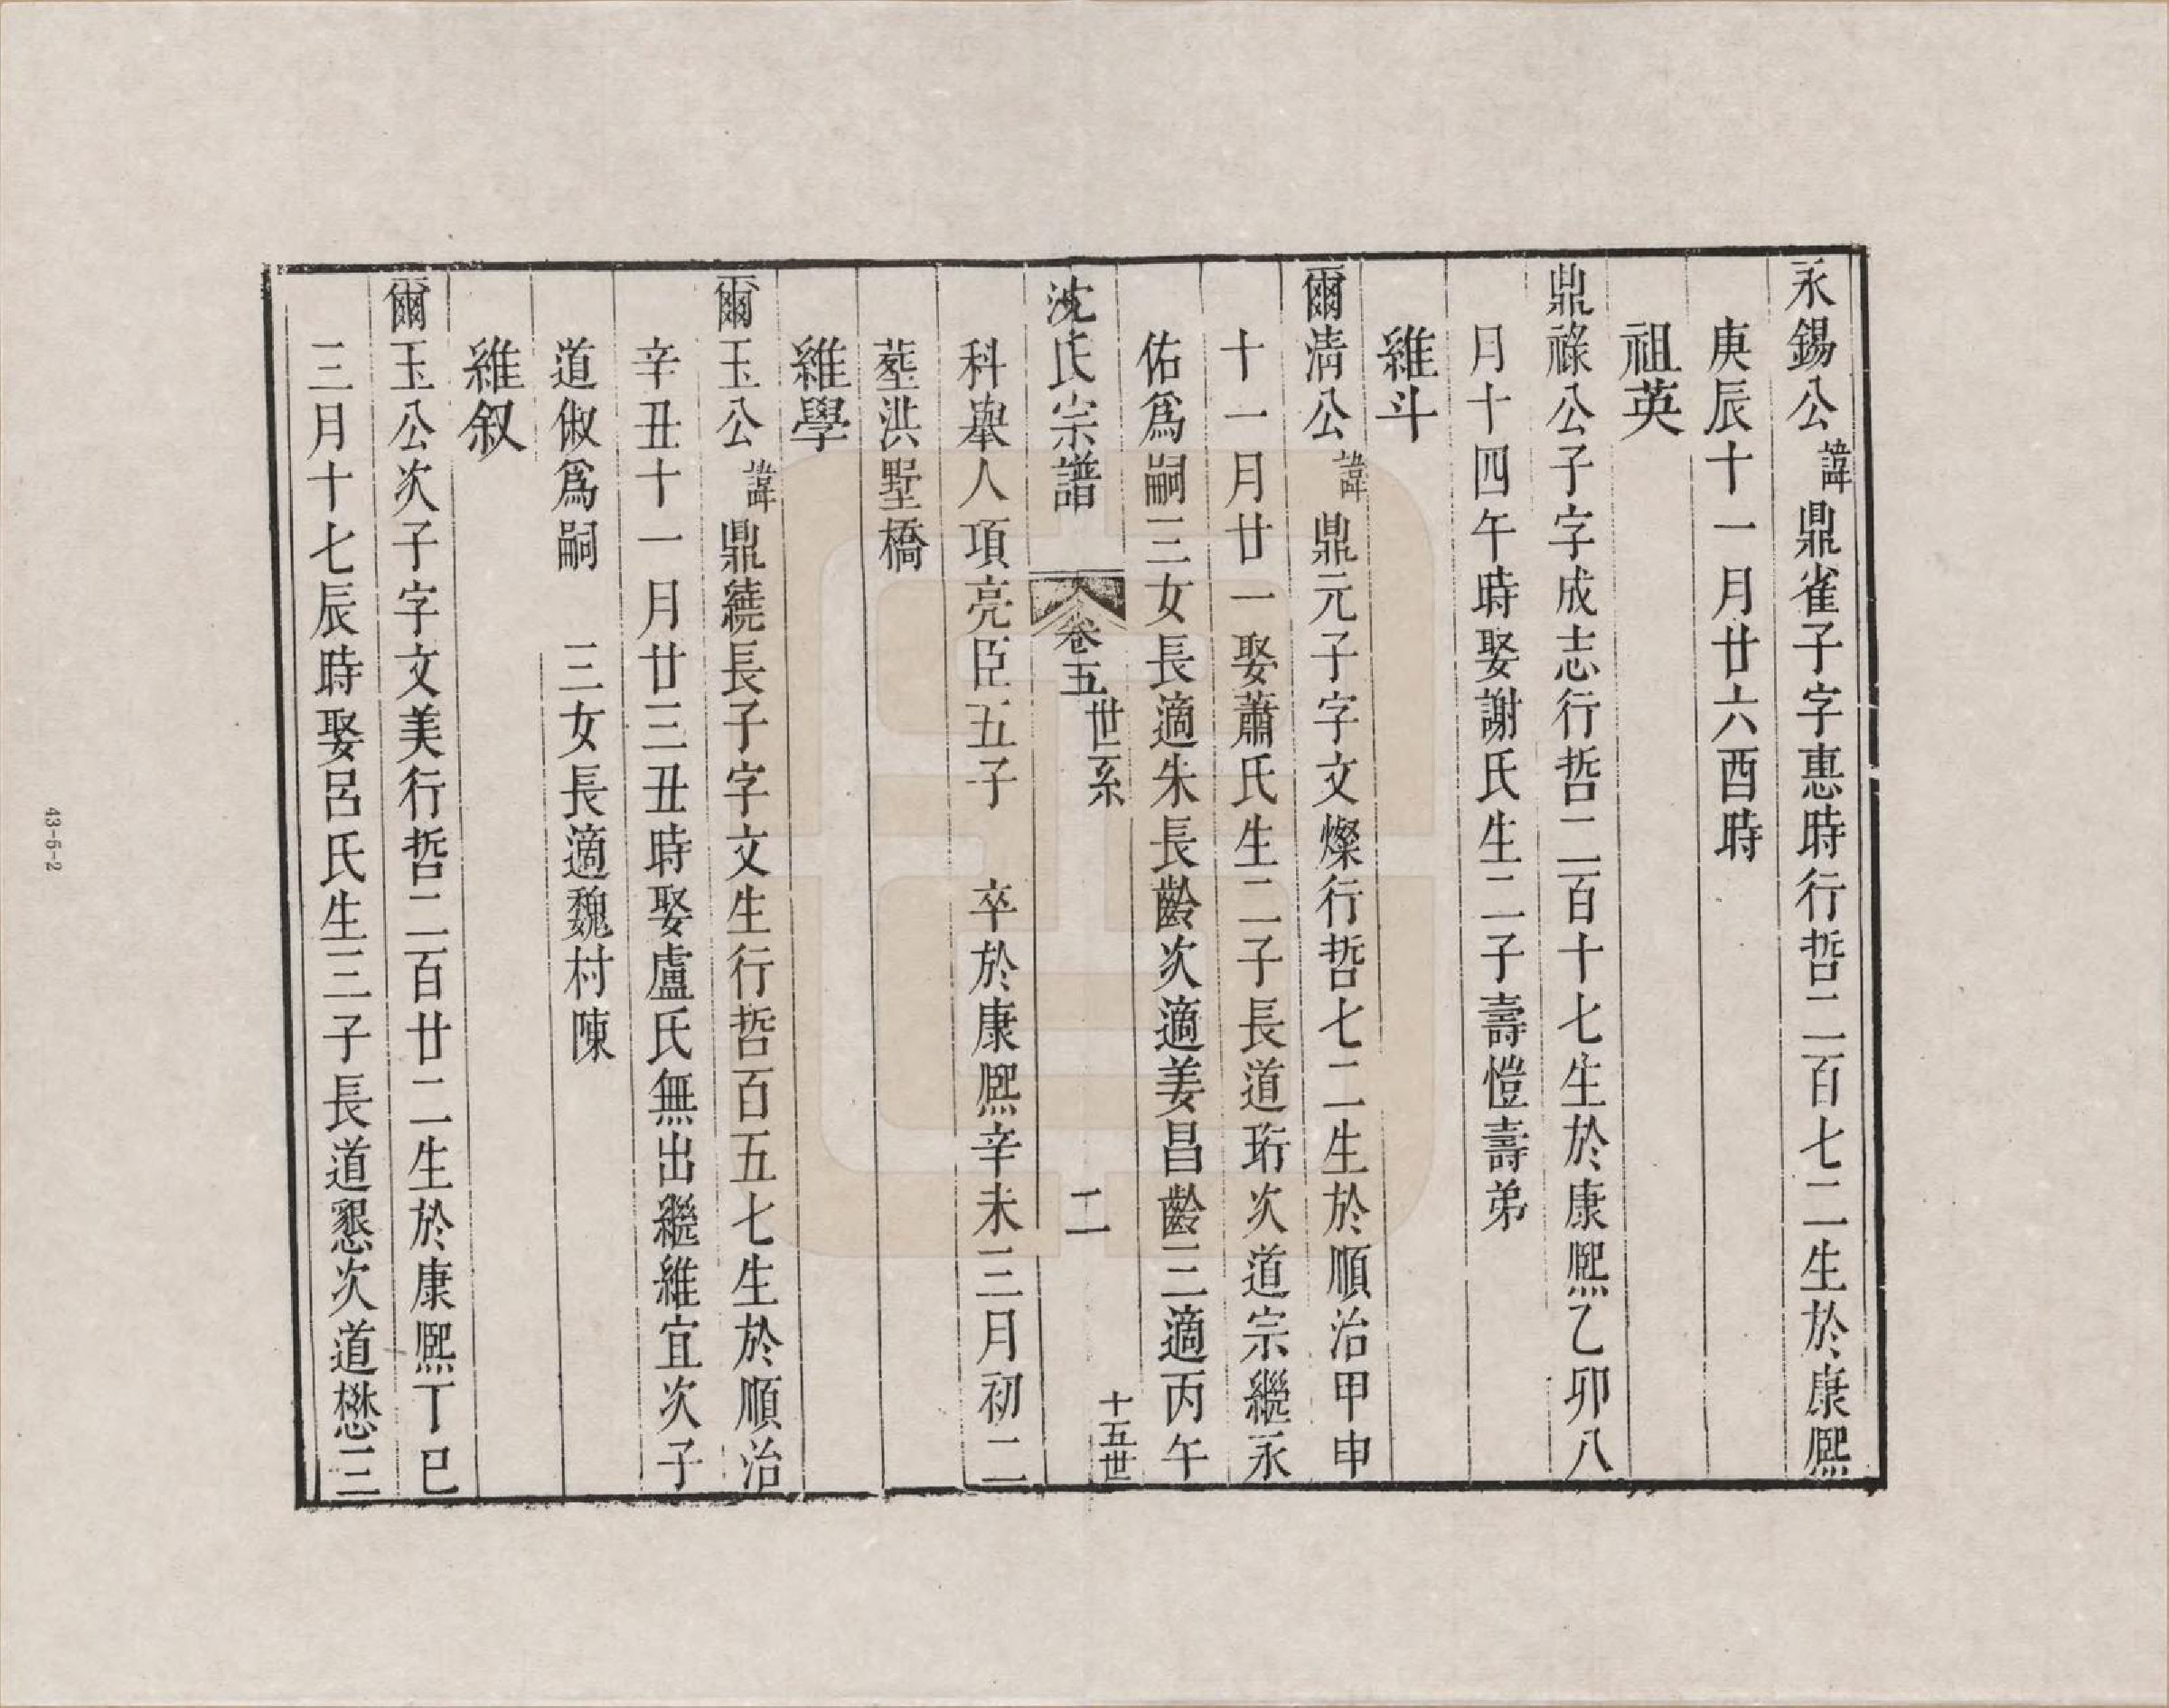 永錫公諱鼎雀子字惠時行哲二百七二生於康熙
庚辰十一月廿六酉時
祖英
鼎祿公子字成志行哲二百十七生於康熙乙卯八
月十四午時娶謝氏生二子壽愷壽弟
維斗
爾清公諱鼎元子字文燦行哲七二生於順治甲申
十一月廿一娶蕭氏生二子長道珩次道宗繼永
佑爲嗣三女長適朱長齡次適姜昌齡三適丙午
沈氏宗譜 卷五 世系 二 十五世
科舉人項亮臣五子 卒於康熙辛未三月初二
塟洪墅橋
維學
爾玉公諱鼎繞長子字文生行哲百五七生於順治
辛丑十一月廿三丑時娶盧氏無出繼維宜次子
道俶爲嗣 三女長適魏村陳
維叙
爾玉公次子字文美行哲二百廿二生於康熙丁巳
三月十七辰時娶呂氏生三子長道懇次道懋三
43-5-2